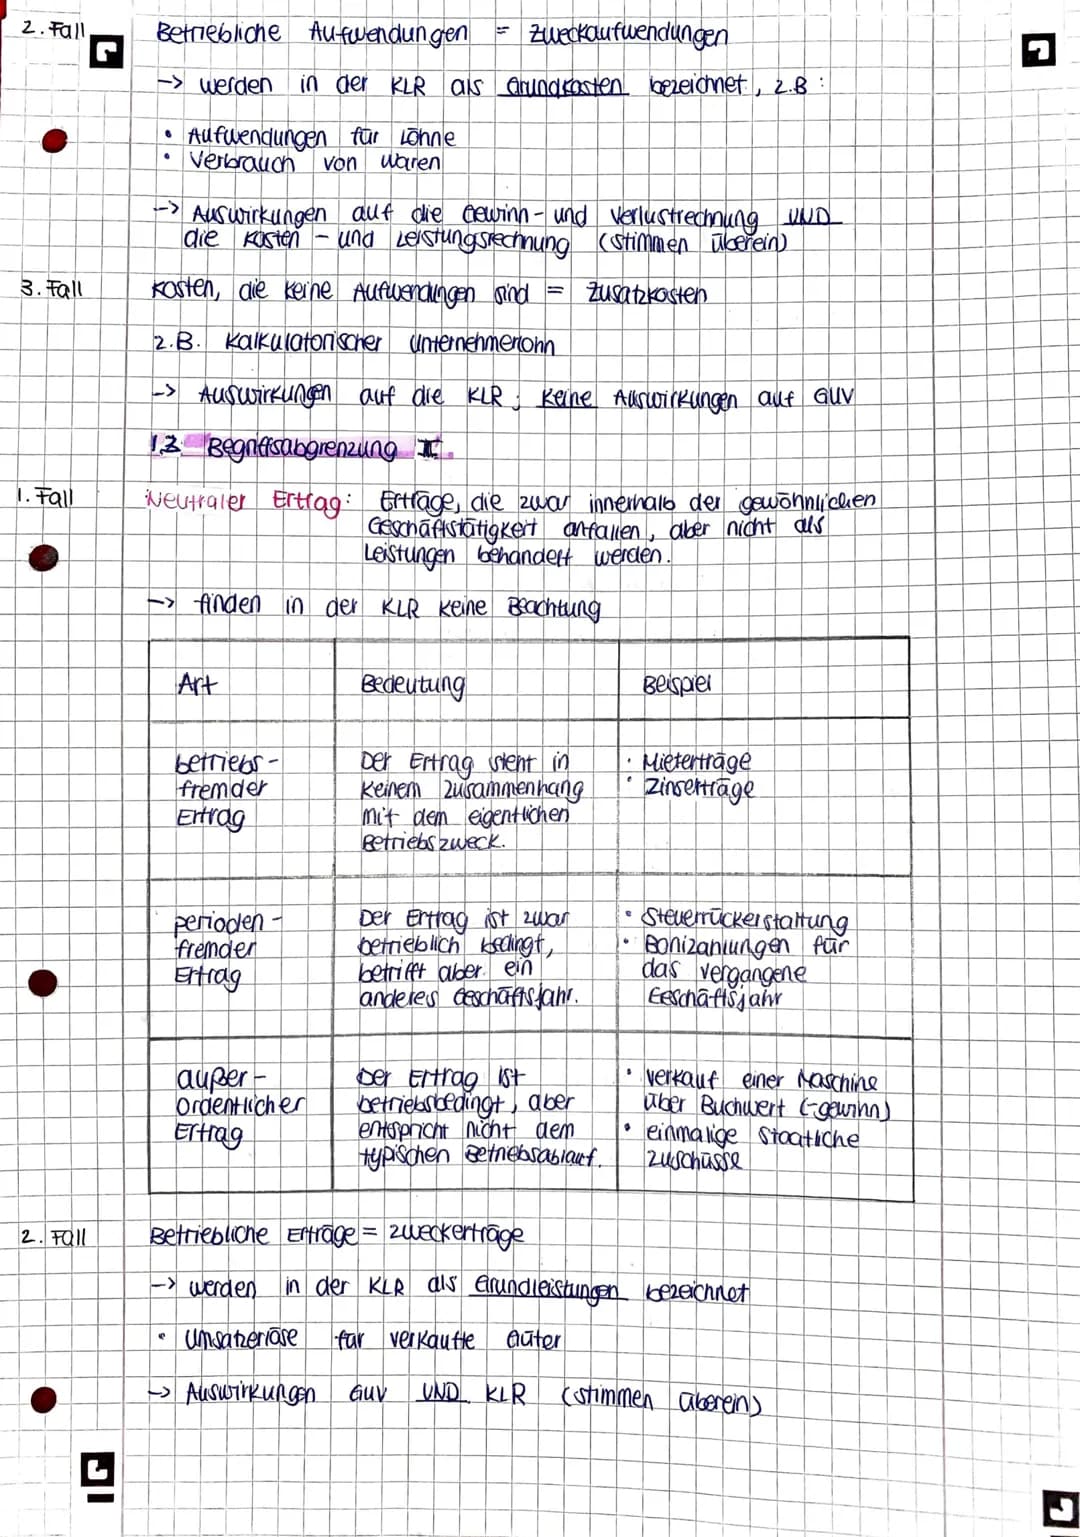 2. Fall Betriebliche Aufwendungen = Zweckaufwendungen
-> werden in der KLR als Grundkosten bezeichnet, z.B:
• Aufwendungen für Löhne
• Verbrauch von Waren
-> Auswirkungen auf die Gewinn- und Verlustrechnung UND
die Kosten- und Leistungsrechnung (stimmen überein)
3. Fall Kosten, die keine Aufwendungen sind = Zusatzkosten
z.B. Kalkulatorischer Unternehmerlohn
-> Auswirkungen auf die KLR; keine Auswirkungen auf GUV
1.3. Begriffsabgrenzung II
1. Fall Neutraler Ertrag: Erträge, die zwar innerhalb der gewöhnlichen
Geschäftstätigkeit anfallen, aber nicht als
Leistungen behandelt werden.
-> finden in der KLR keine Beachtung
Art Bedeutung Beispiel
betriebs-
fremder
Ertrag
Der Ertrag steht in
keinem Zusammenhang
mit dem eigentlichen
Betriebszweck.
• Mieterträge
• Zinserträge
perioden-
fremder
Ertrag
Der Ertrag ist zwar
betrieblich bedingt,
betrifft aber ein
anderes Geschäftsjahr.
• Steuerrückerstattung
• Bonizahlungen für
das vergangene
Geschäftsjahr
außer-
ordentlicher
Ertrag
Der Ertrag ist
betriebsbedingt, aber
entspricht nicht dem
typischen Betriebsablauf.
• Verkauf einer Maschine
über Buchwert (-gewinn)
• einmalige staatliche
Zuschüsse
2. Fall Betriebliche Erträge = Zweckerträge
-> werden in der KLR als Grundleistungen bezeichnet
• Umsatzerlöse für verkaufte Güter
-> Auswirkungen GUV UND KLR (stimmen überein)